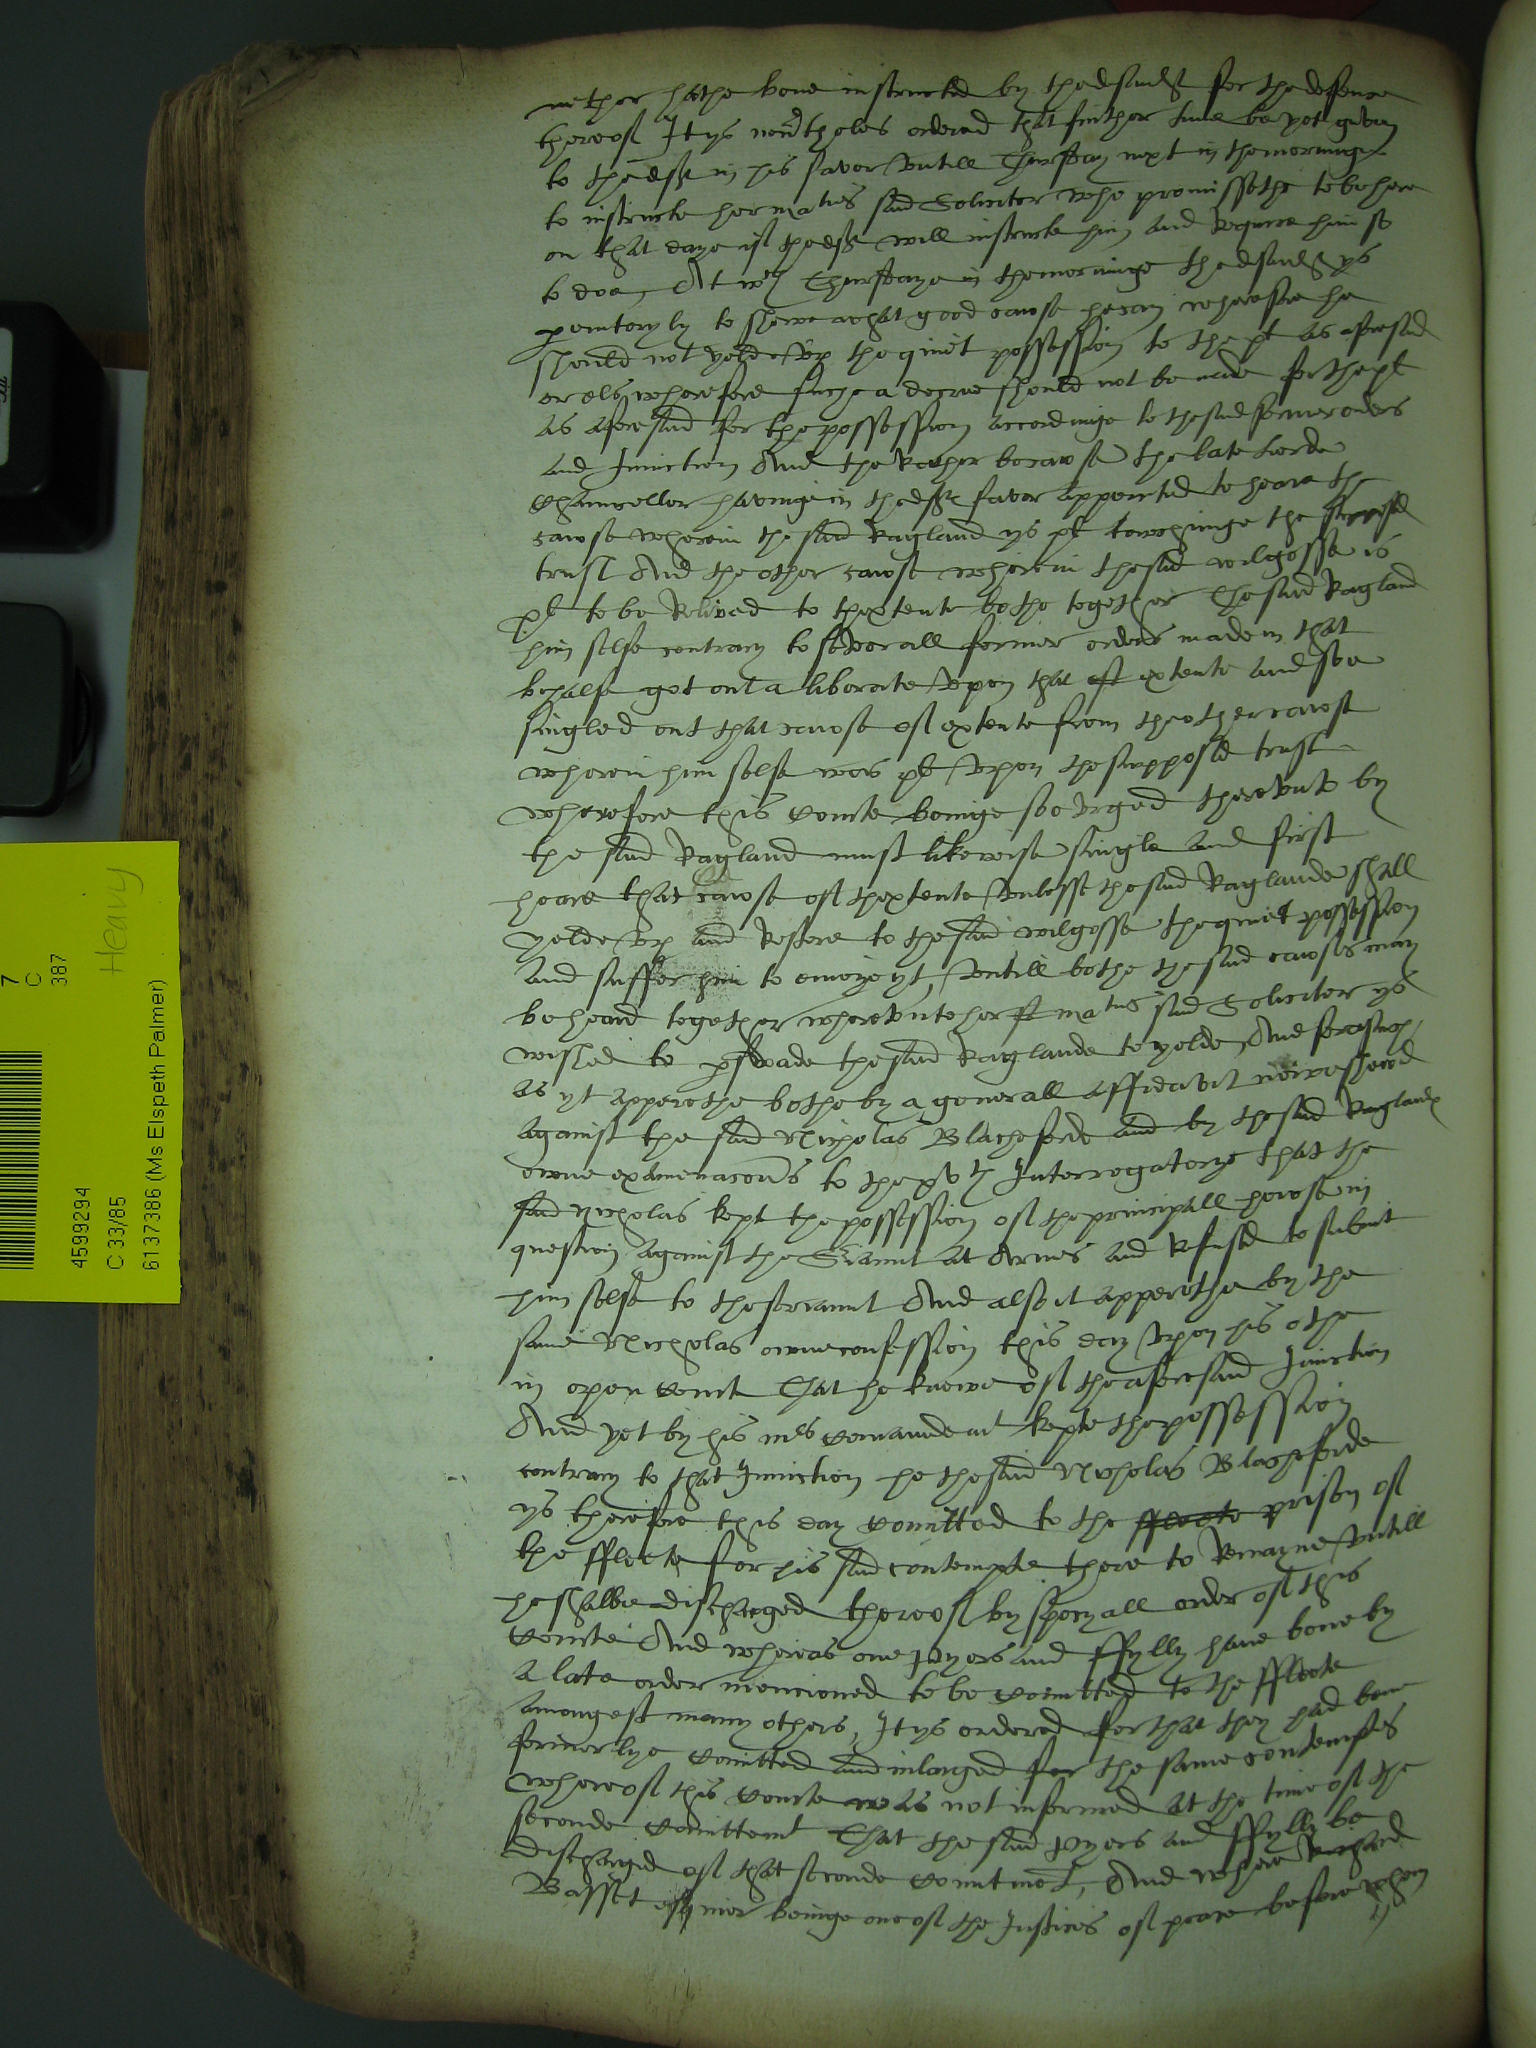 nether hathe bene instructed by thedefend^t for thedefence
thereof It ys nev^rtheles ordered that further time be yet given
to thedef^t in his favor vntill Thursday next in themorninge
to instructe hermat^ies said Soliciter who promissethe tobehere
on that daye if thedef^t will instructe him and Require him so
to doe, At w^ch Thursdaye in themorninge thedefend^t ys
peremtoryly to shewe what good cawse hecan wherefore he
should not yelde vp the quiet possession to the pl^t as aforesaid
or els wherefore suche a decree should not be made for the pl^t
as aforesaid for the possession accordinge to thesaid former orders
and Iniunction And the Rather becawse the late Lorde
Chauncellor havinge in thedef^tes favor appointed to heare the
cawse wherein the said Ragland ys pl^t towchinge the supposed
trust And the other cawse wherein thesaid wilgosse is
pl^t to be Relived to thextente bothe together The said Ragland
him selfe contrary to severall former orders made in that
behalfe got out a liberate vpon that extente and soe
singled out that cawse of extente from theother cawse
wherein him selfe was pl^t vpon thesupposed trust
wherefore this Courte beinge soe vrged therevnto by
the said Ragland must likewise single and first
heare that cawse of thextente vnlesse thesaid Raglande shall
yelde vp and Restore to thesaid wilgosse thequiet possession
and suffer him to emoye yt, vntill bothe the said cawses may
be heard together wherevnto her mat^ies said Soliciter ys
wished to p^rswade thesaid Raglande to yelde, And forasmuch
as yt apperethe bothe by a generall affidavit
against the said Nicholas Blacheforde and by thesaid Raglands
owne examinacons to the xv^th Interrogatorye that the
said Nicholas kept the possession of theprincipall howse in
question against the Sriaunt at Armes and Refused to submit
him selfe to theseriaunt And also it apperethe by the
same Nicholas owne confession this day vpon his othe
in open Court That he knewe of theaforesaid Iniunction
And yet by his m^rs Comaundem^t kepte thepossession
contrary to that Iniunction he thesaid Nicholas Blacheforde
ys therefore this day Comitted to the ffleete prison of
the ffleete for his said contempte there to Remayne vntill
he shalbe discharged thereof by specyall order of this
Courte And whereas one Myers and ffylly have bene by
a late order mencioned to be Comitted to the ffleete
amongest many others, It ys ordered for that they had bene
formerlye Comitted and inlarged for the same contemptes
whereof this Courte was not informed at the time of the
seconde Comittem^t That the said Myers and ffylly be
discharged of that seconde Comitment, And where Richard
Basset esquier beinge one of the Iustices of peace before whom
4599294
C 33/85
6137386 (Ms Elspeth Palmer)
7
C
387
Heavy